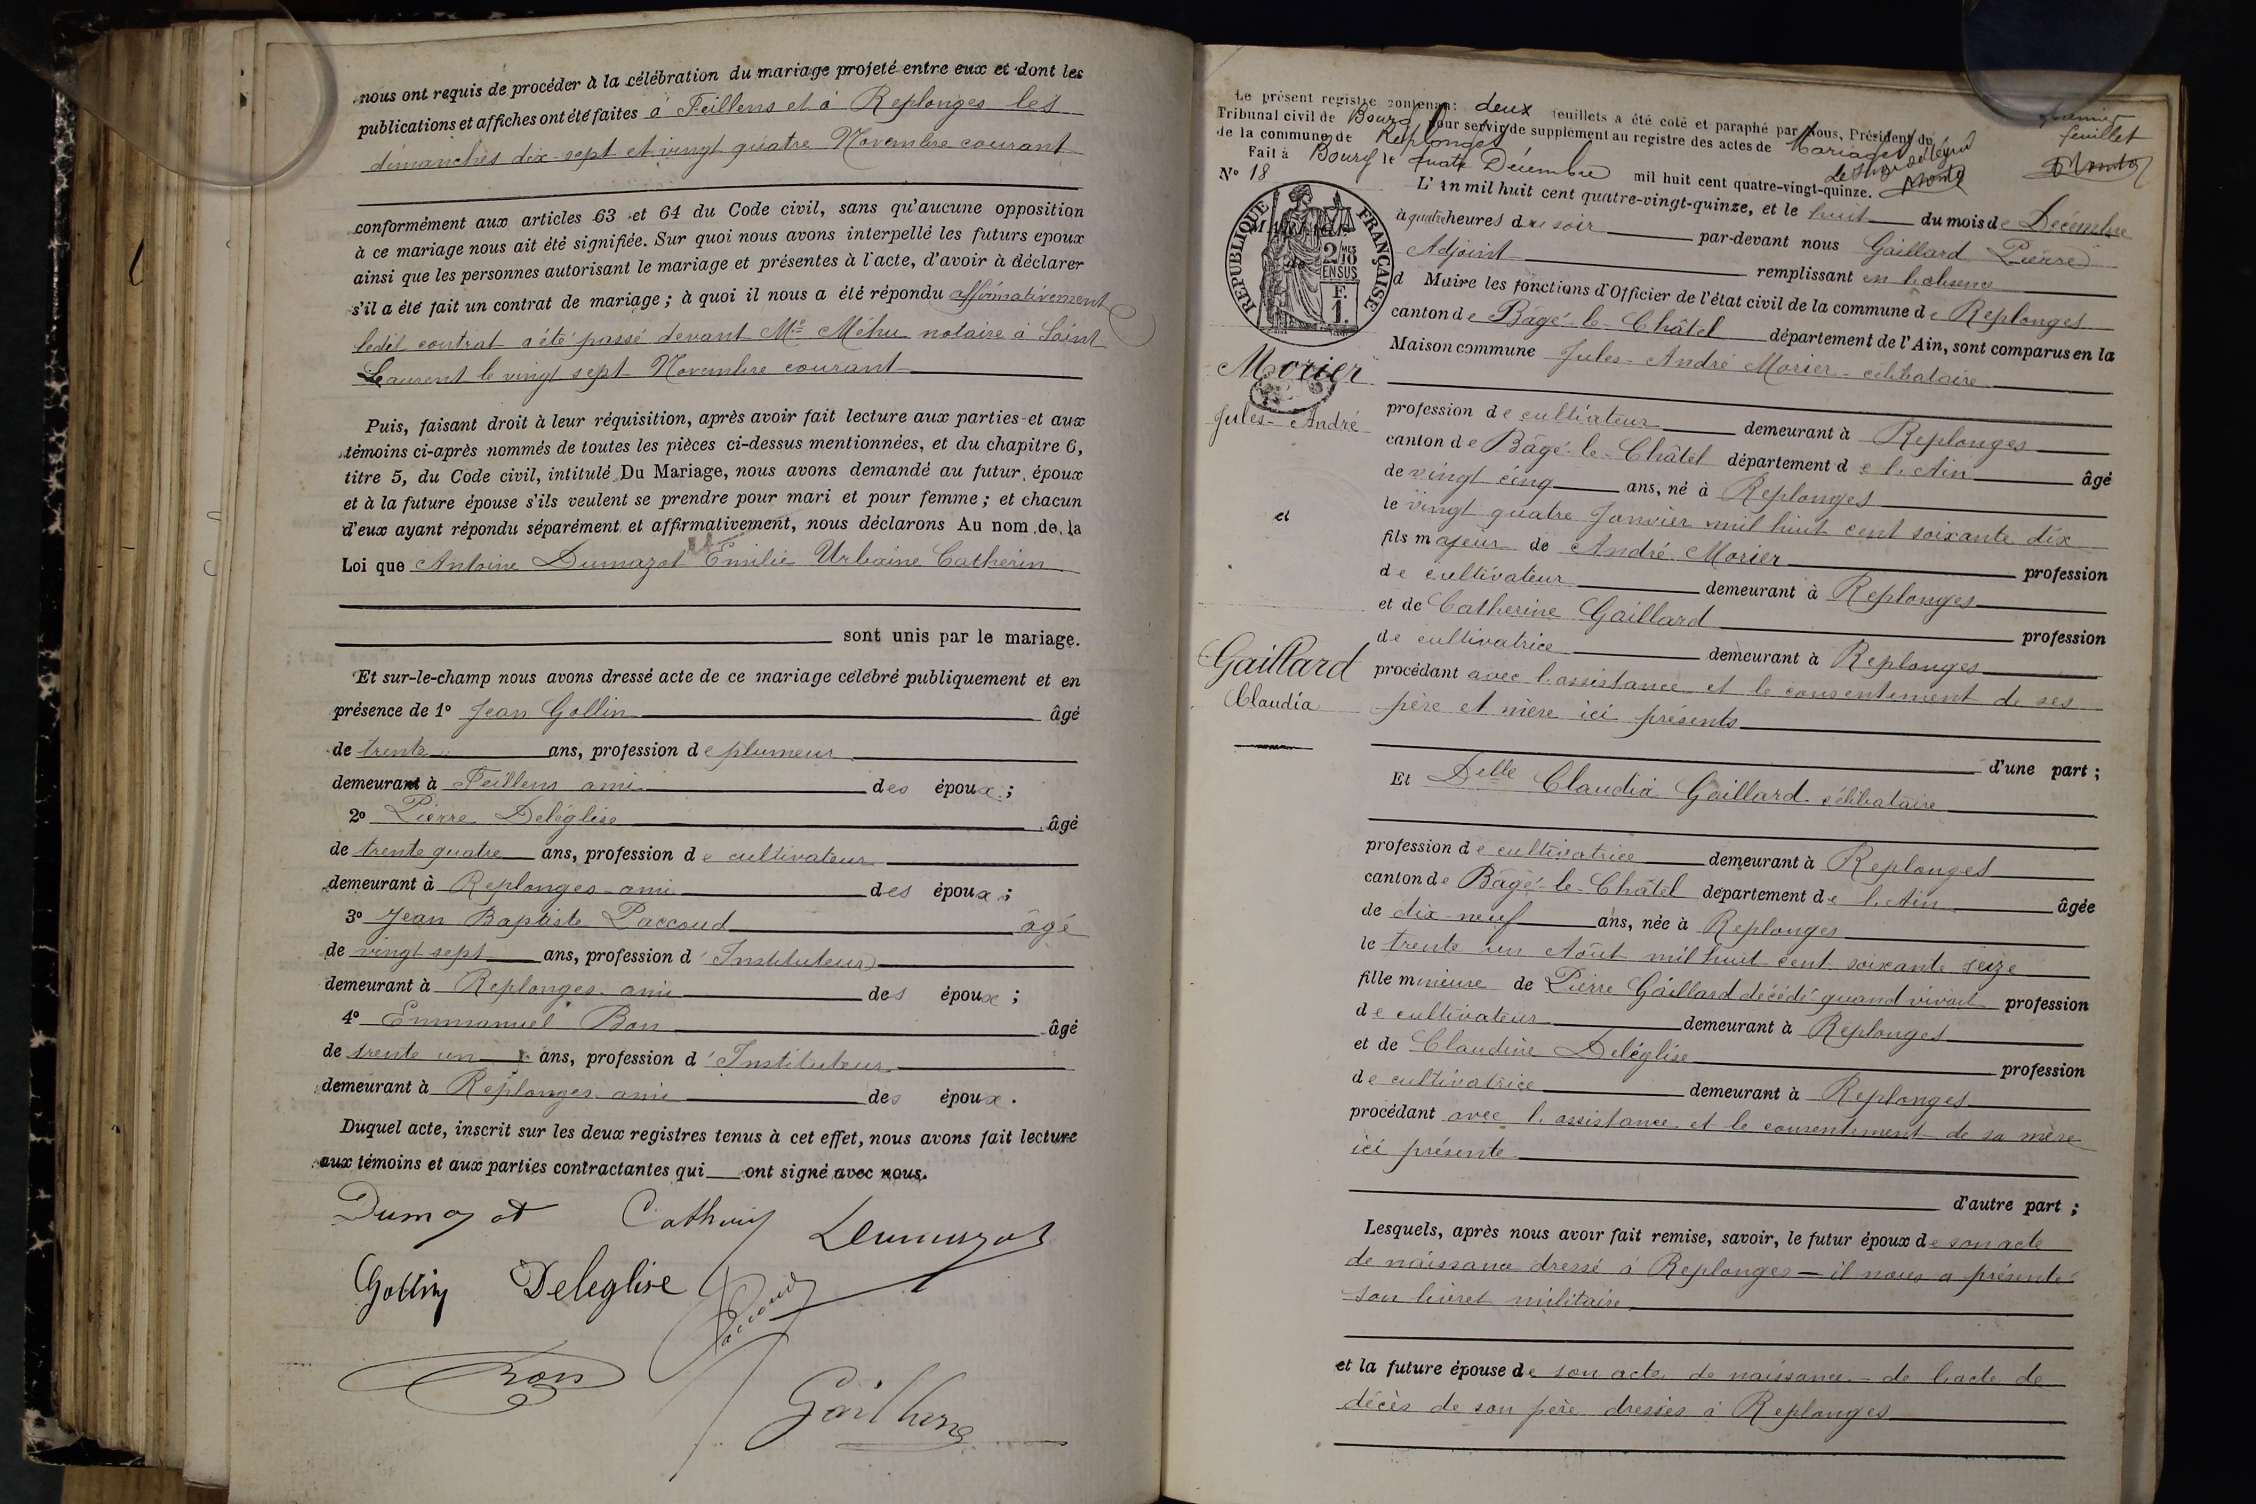 nous ont requis de procéder à la célébration du mariage projeté entre eux et dont les
publications et affiches ont été faites à Feillens et à Replonges les
dimanches dix-sept et vingt quatre Novembre courant
conformément aux articles 63 et 64 du Code civil, sans qu'aucune opposition
à ce mariage nous ait été signifiée. Sur quoi nous avons interpellé les futurs epoux
ainsi que les personnes autorisant le mariage et présentes à l'acte, d'avoir à déclarer
s'il a été fait un contrat de mariage ; à quoi il nous a été répondu affirmativement
ledit contrat a été passé devant Me Méhu notaire à Saint
Laurent le vingt sept Novembre courant
Puis, faisant droit à leur réquisition, après avoir fait lecture aux parties et aux
témoins ci-après nommés de toutes les pièces ci-dessus mentionnées, et du chapitre 6,
titre 5, du Code civil, intitulé Du Mariage, nous avons demandé au futur époux
et à la future épouse s'ils veulent se prendre pour mari et pour femme ; et chacun
d'eux ayant répondu séparément et affirmativement, nous déclarons Au nom de la
Loi que Antoine Dumazot et Emilie Urbaine Catherin
sont unis par le mariage.
Et sur-le-champ nous avons dressé acte de ce mariage célébré publiquement et en
présence de 1° Jean Gollin âgé
de trente ans, profession de plumeur
demeurant à Feillens ami des époux ;
2° Pierre Deléglise âgé
de trente quatre ans, profession de cultivateur
demeurant à Replonges ami des époux ;
3° Jean Baptiste Paccoud âgé
de vingt sept ans, profession d'Instituteur
demeurant à Replonges ami des époux ;
4° Emmanuel Bon âgé
de trente un ans, profession d'Instituteur
demeurant à Replonges ami des époux.
Duquel acte, inscrit sur les deux registres tenus à cet effet, nous avons fait lecture
aux témoins et aux parties contractantes qui ont signé avec nous.
Dumazot Catherin Dumazot
Gollin Deleglise Paccoud
Bon
Le présent registre contenant deux feuillets a été coté et paraphé par Nous, Président du
Tribunal civil de Bourg pour servir de supplément au registre des actes de Mariages
de la commune de Replonges
Fait à Bourg le quatre Décembre mil huit cent quatre-vingt-quinze.
Le Juge délégué
premier
feuillet
N° 18
RÉPUBLIQUE FRANÇAISE
2/10 EN SUS
F. 1.
L'an mil huit cent quatre-vingt-quinze, et le huit du mois de Décembre
à quatre heures du soir par-devant nous Gaillard Pierre
Adjoint remplissant en l'absence
d Maire les fonctions d'Officier de l'état civil de la commune de Replonges
canton de Bâgé-le-Châtel département de l'Ain, sont comparus en la
Maison commune Jules-André Morier célibataire
Morier
Jules-André
et
Gaillard
Claudia
profession de cultivateur demeurant à Replonges
canton de Bâgé-le-Châtel département de l'Ain âgé
de vingt cinq ans, né à Replonges
le vingt quatre Janvier mil huit cent soixante dix
fils majeur de André Morier profession
de cultivateur demeurant à Replonges
et de Catherine Gaillard profession
de cultivatrice demeurant à Replonges
procédant avec l'assistance et le consentement de ses
père et mère ici présents
d'une part ;
Et Delle Claudia Gaillard célibataire
profession de cultivatrice demeurant à Replonges
canton de Bâgé-le-Châtel département de l'Ain âgée
de dix-neuf ans, née à Replonges
le trente un Août mil huit cent soixante seize
fille mineure de Pierre Gaillard décédé quand vivait profession
de cultivateur demeurant à Replonges
et de Claudine Deléglise profession
de cultivatrice demeurant à Replonges
procédant avec l'assistance et le consentement de sa mère
ici présente
d'autre part ;
Lesquels, après nous avoir fait remise, savoir, le futur époux de son acte
de naissance dressé à Replonges — il nous a présenté
son livret militaire
et la future épouse de son acte de naissance - de l'acte de
décès de son père dressés à Replonges